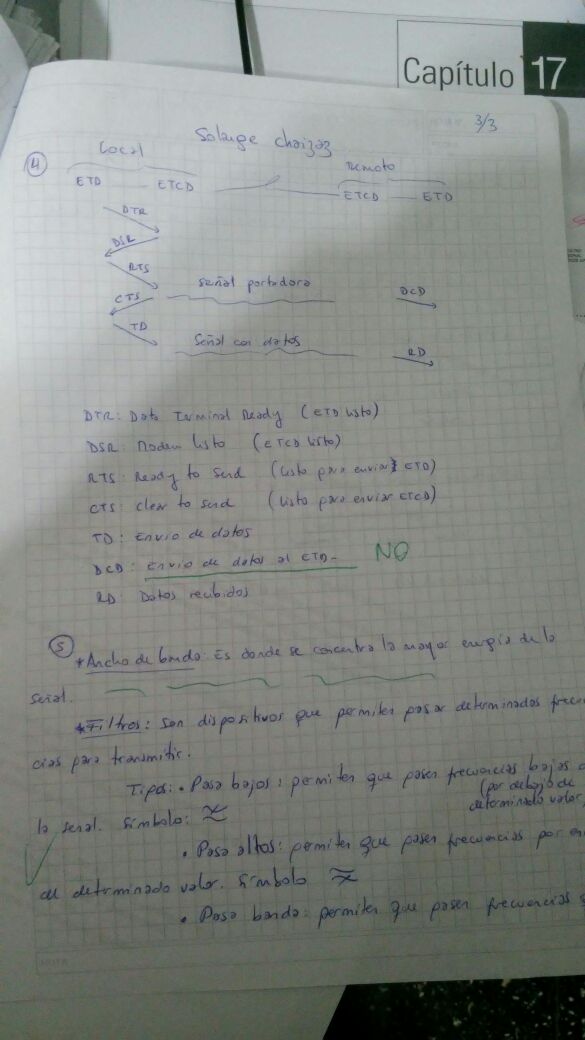 Capítulo 17
3/3
Solange Chaizaz
4
Local
Remoto
ETD ETCD ETCD ETD
DTR
DSR
RTS
CTS señal portadora DCD
TD
Señal con datos RD
DTR: Data Terminal Ready (ETD listo)
DSR: Modem listo (ETCD listo)
RTS: Ready to send (listo para enviar ETD)
CTS: clear to send (listo para enviar ETCD)
TD: Envío de datos
DCD: Envío de datos al ETD- NO
RD: Datos recibidos
5
*Ancho de banda: Es donde se concentra la mayor energía de la
señal.
*Filtros: son dispositivos que permiten pasar determinadas frecuen
cias para transmitir.
Tipos: • Pasa bajos: permiten que pasen frecuencias bajas d
(por debajo de
determinado valor)
la señal. Símbolo:
• Pasa altos: permiten que pasen frecuencias por en
de determinado valor. Símbolo
• Pasa banda: permiten que pasen frecuencias
NOTA